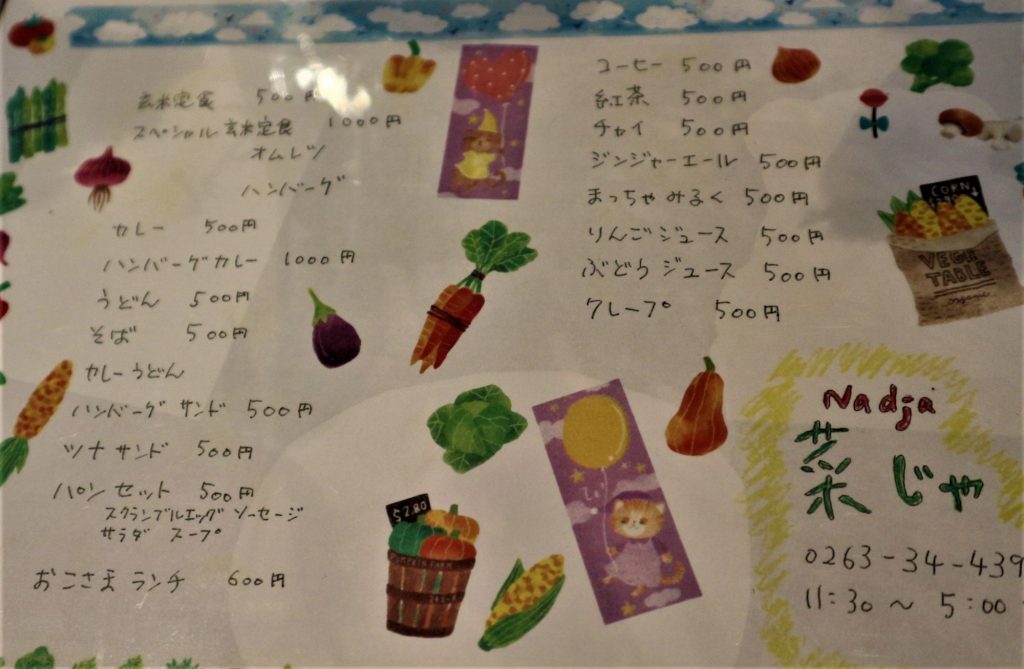 玄米定食 500円
スペシャル玄米定食 1000円
オムレツ
ハンバーグ
カレー 500円
ハンバーグカレー 1000円
うどん 500円
そば 500円
カレーうどん
ハンバーグサンド 500円
ツナサンド 500円
パンセット 500円
スクランブルエッグ ソーセージ
サラダ スープ
おこさまランチ 600円
$2.80
PUMPKIN FARM
コーヒー 500円
紅茶 500円
チャイ 500円
ジンジャーエール 500円
まっちゃみるく 500円
りんごジュース 500円
ぶどうジュース 500円
クレープ 500円
CORN
VEGE
TABLE
organic
Nadja
菜じゃ
0263-34-439
11:30〜5:00